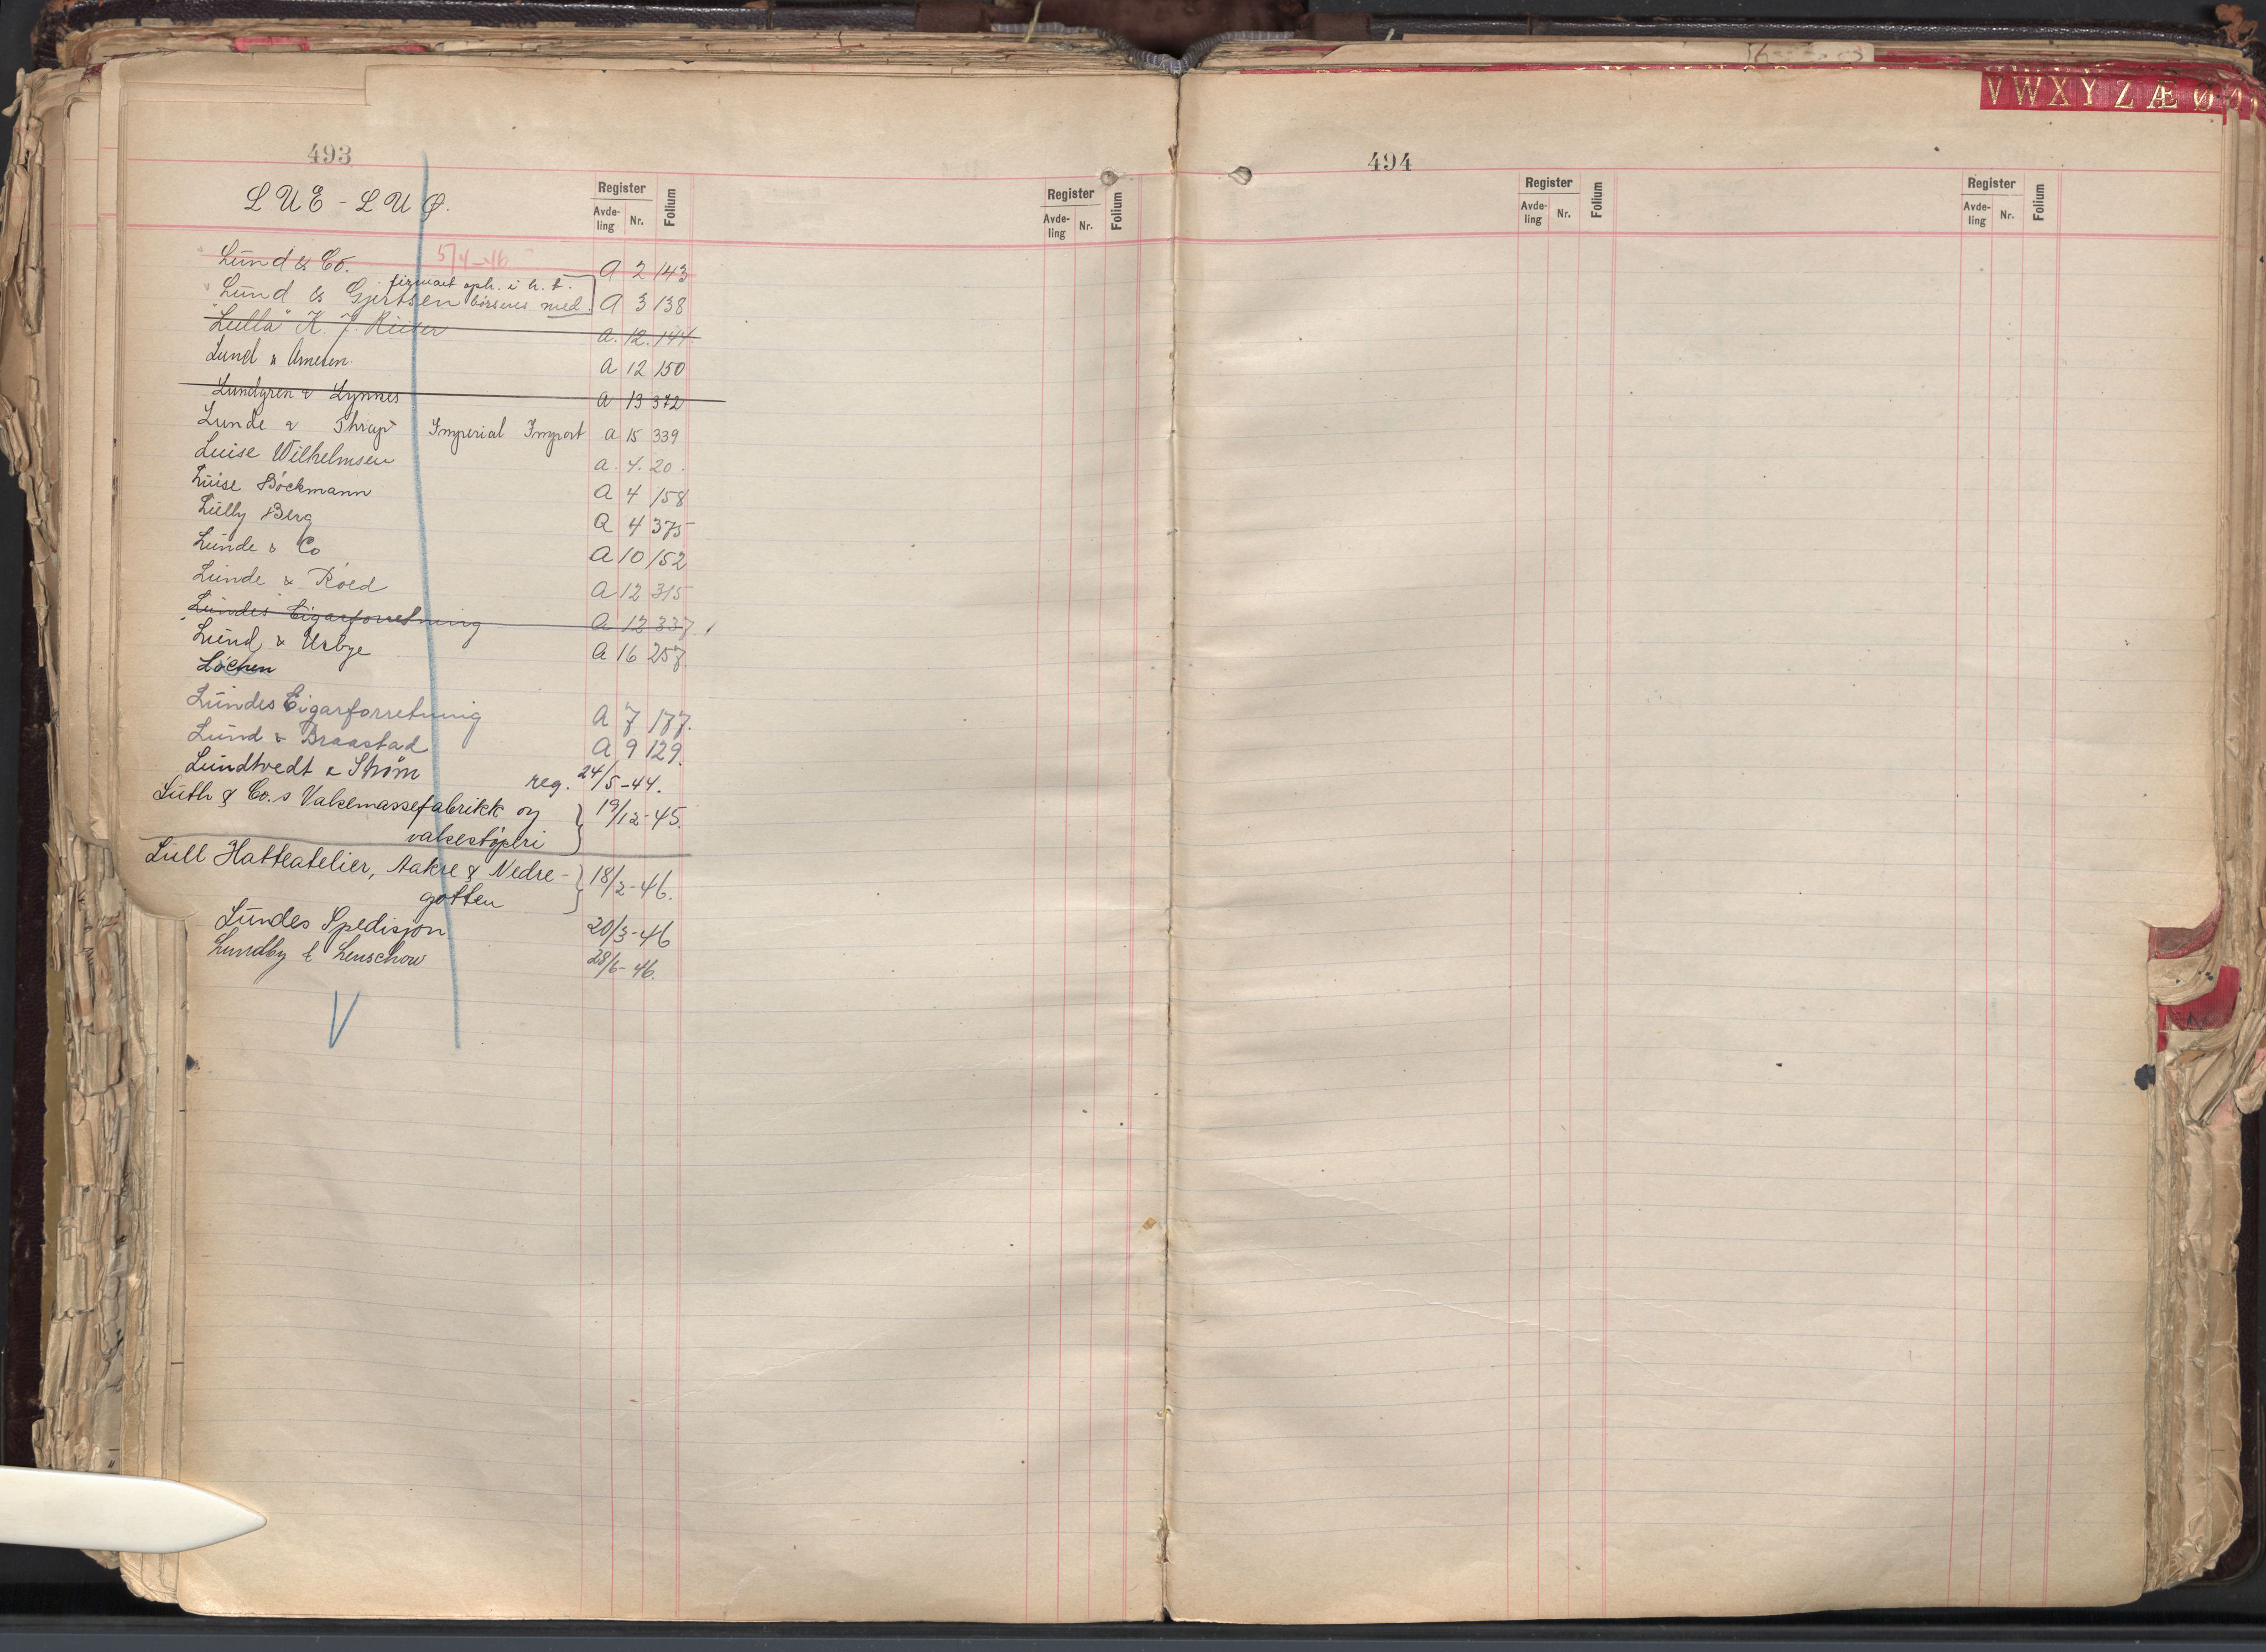 V W X Y Z Æ Ø
493
LUE - LUØ.
Register
Avde-ling Nr. Folium
Register
Avde-ling Nr. Folium
Lund & Co. 5/4-46 A 2 143
firmaet oph. i h. t.
Lund & Gjertsen børsens med. A 3 138
"Lulla" K. J. Reiser A. 12. 144.
Lund & Arnesen. A 12 150
Lundgren & Lynnes A 13 372
Lunde & Thrap Imperial Import A 15 339
Luise Wilhelmsen A. 4. 20.
Luise Böckmann A 4 158
Lully Berg A 4 375
Lunde & Co A 10 152
Lunde & Röed A 12 315
Lundes Cigarforretning A 12 337.
Lund & Usbye A 16 257.
Löchen
Lundes Cigarforretning A 7 177.
Lund & Braastad A 9 129.
Lundtvedt & Strøm reg. 24/5-44.
Luth & Co.s Valsemassefabrikk og
valsestøperi 19/12-45.
Lull Hatteatelier, Aakre & Nedre-
gotten 18/2-46.
Lundes Spedisjon 20/3-46
Lundby & Lenschow 28/6-46.
V
494
Register
Avde-ling Nr. Folium
Register
Avde-ling Nr. Folium